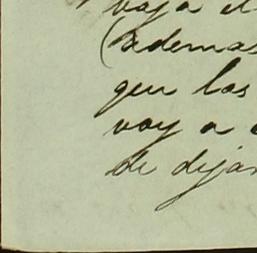 vaya el
(ademas
que las
voy a
de dejar